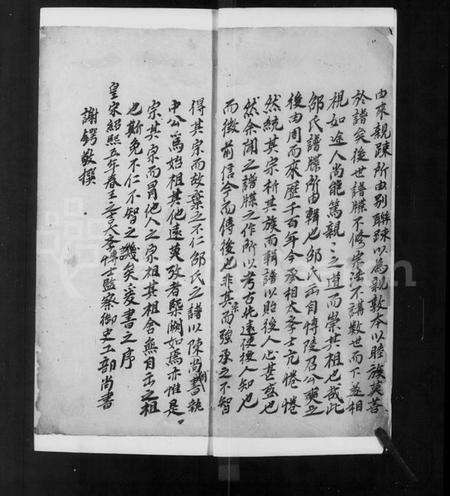 由來親踈所由别聮踈以為親敦本以睦族莫善
於譜矣後世譜牒不修宗法不講數世而下遂相
視如途人尚能篤親〻之道而崇其祖也哉此
邵氏譜牒所由輯也邵氏出自
後由周而來歷千百年今承相大學士亢惓惓
然統其宗析其族而輯譜以貽後人心甚盛也
然余聞之譜牒之作所以考古比遠使後人知也
而徵前信今而傳後也非其而強承之不智
得其宗而故棄之不仁邵氏之譜以陳尚書
中公為始祖其他遠莫攷者槩闕如焉亦惟是
宗其宗而冒他人之宗祖其祖舍無自出之祖
也斯免不仁不智之譏矣爰書之序
皇宋紹熙五年春王 大學博士監察御史工部尚書
謝鍔敬撰